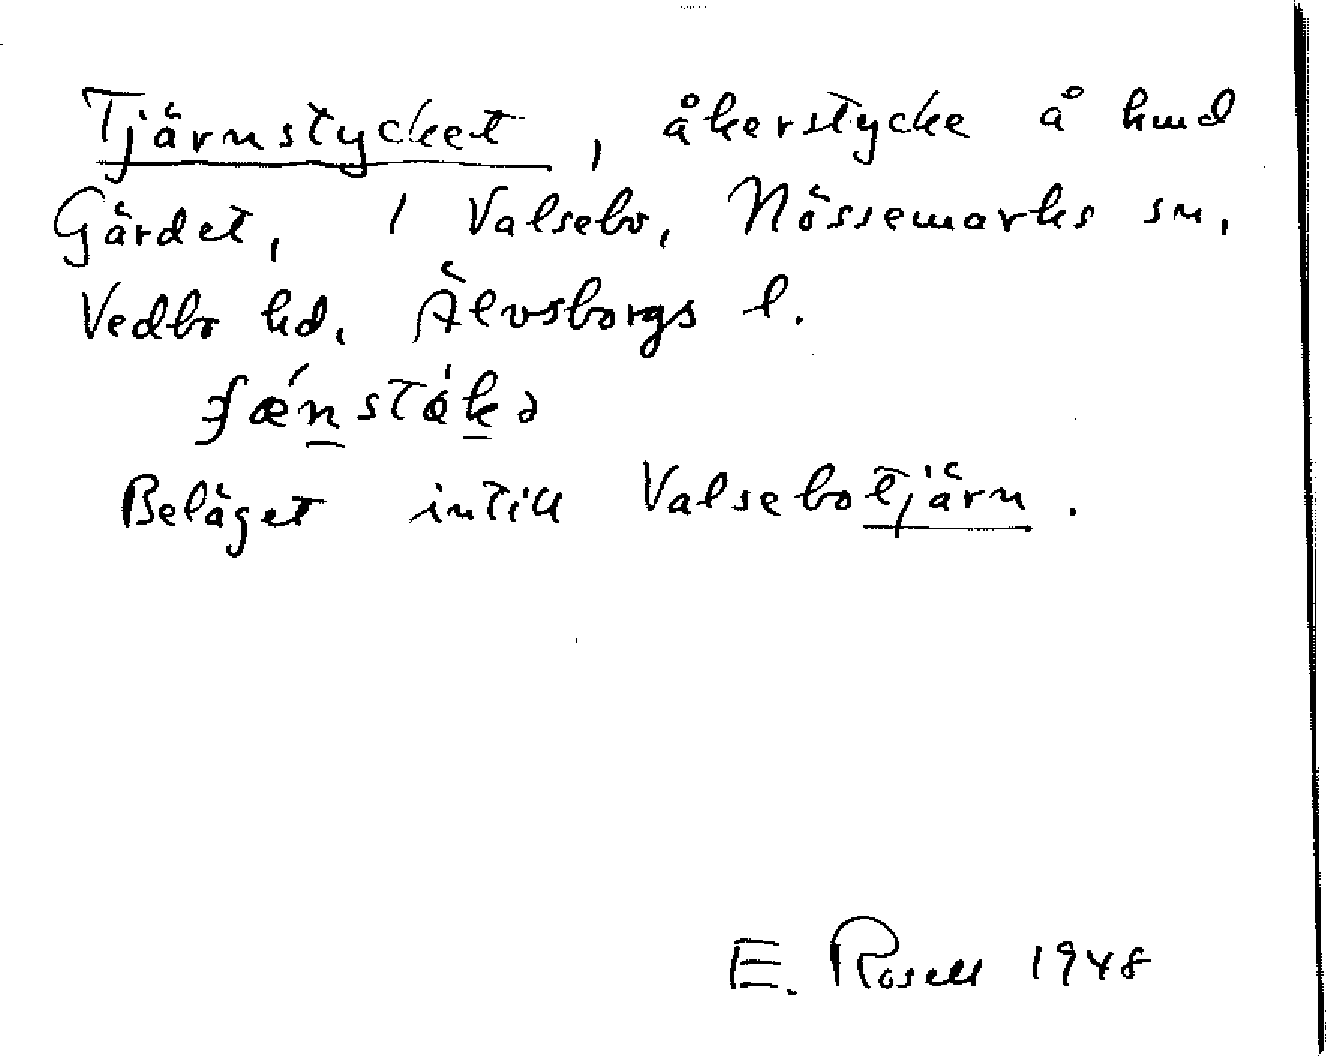 Tjärnstycket, åkerstycke å hmd
Gärdet, 1 Valsebo, Nössemarks sn,
Vedbo hd, Älvsborgs l.
Beläget intill Valsebotjärn.
E. Rosell 1948